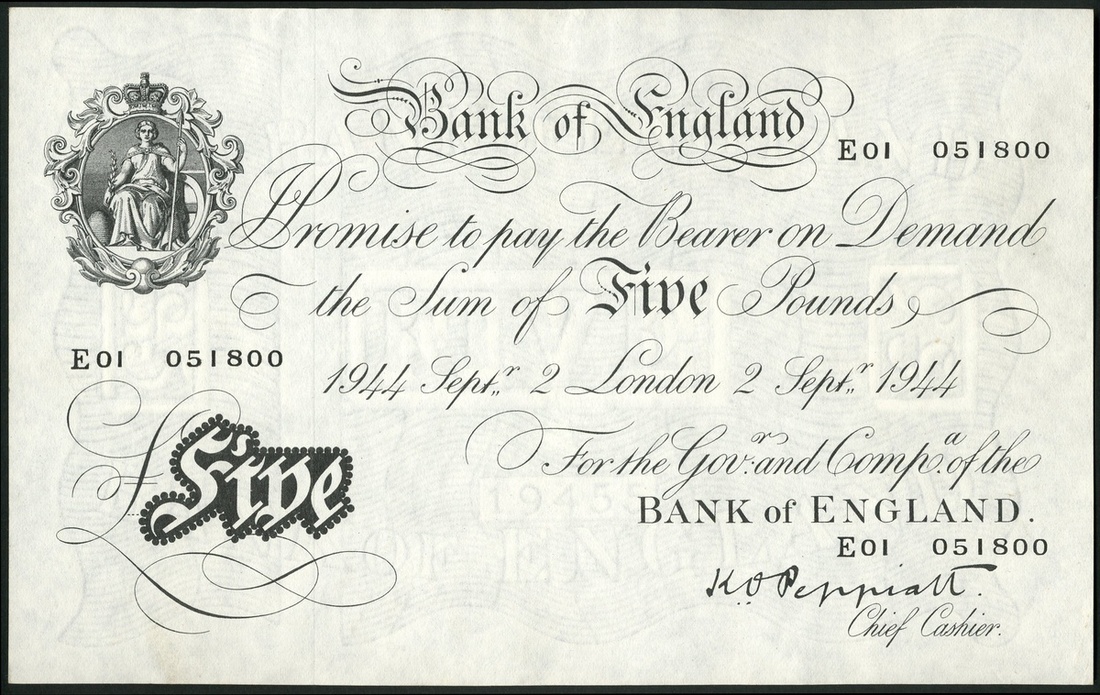 Bank of England
E01 051800
I Promise to pay the Bearer on Demand
the Sum of Five Pounds
E01 051800
1944 Septr 2 London 2 Septr 1944
£Five
For the Govr: and Compa. of the
BANK of ENGLAND.
E01 051800
K.O Peppiatt.
Chief Cashier.